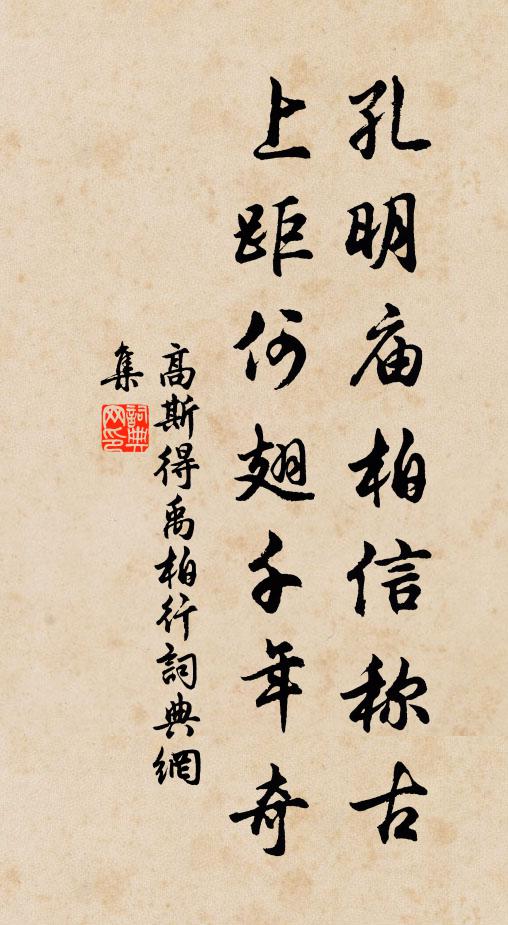 孔明庙柏信称古
上距何翅千年奇
高斯得禹柏行詞典網
集
詞典网印